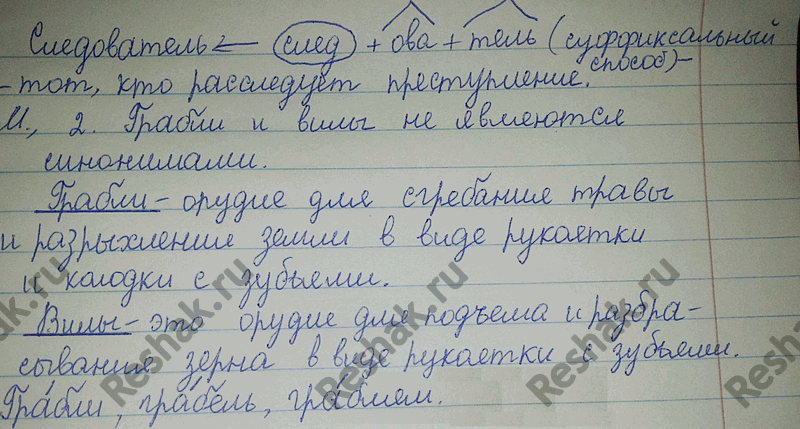 Следователь ← след + ова + тель (суффиксальный способ) -
- тот, кто расследует преступление.
М., 2. Грабли и вилы не являются
синонимами.
Грабли - орудие для сгребания травы
и разрыхления земли в виде рукоятки
и колодки с зубьями.
Вилы - это орудие для подъема и разбра-
сывания зерна в виде рукоятки с зубьями.
Гра́бли, гра́бель, гра́блям.
Reshak.ru
Reshak.ru
Reshak.ru
Reshak.ru